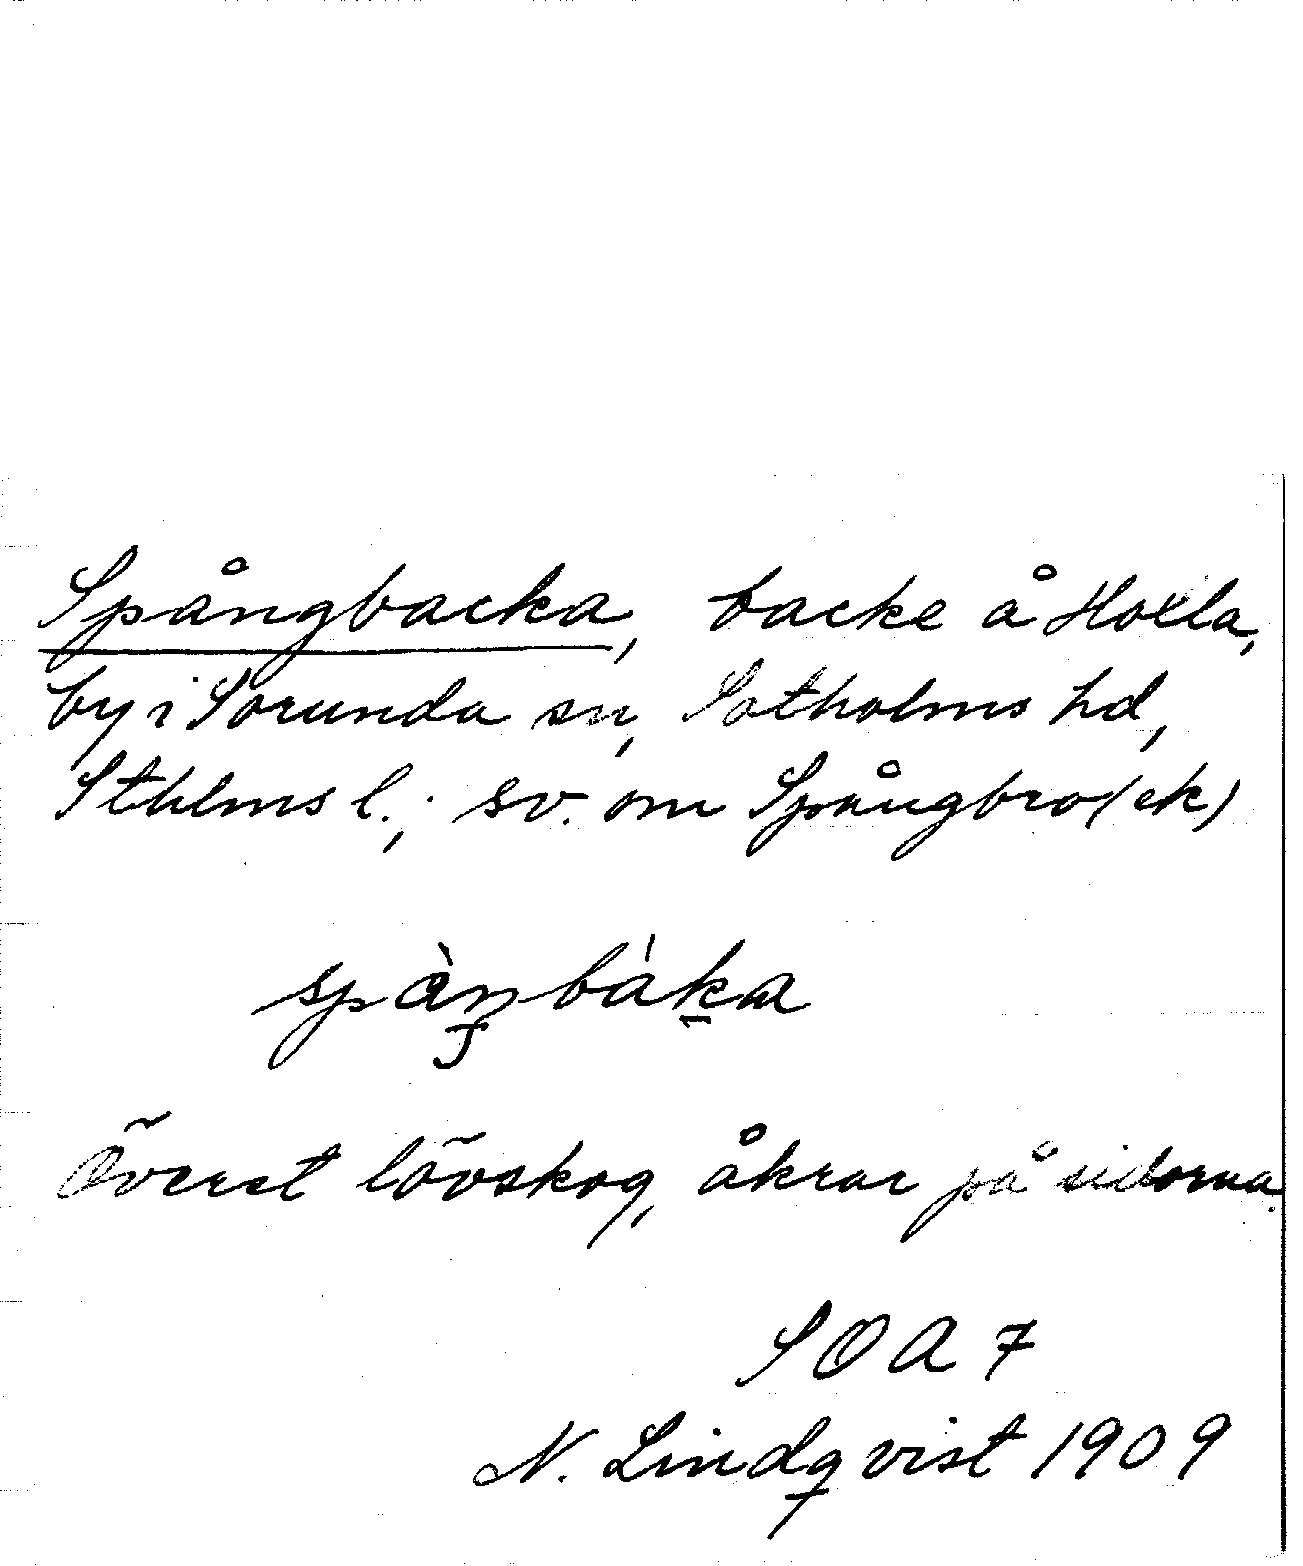 Spångbacka, backe å Holla,
by i Sorunda sn, Sotholms hd,
Sthlms l.; sv. om Spångbro (ek)
spàŋbáka
Överst lövskog, åkrar på sidorna.
SOA 7
N. Lindqvist 1909